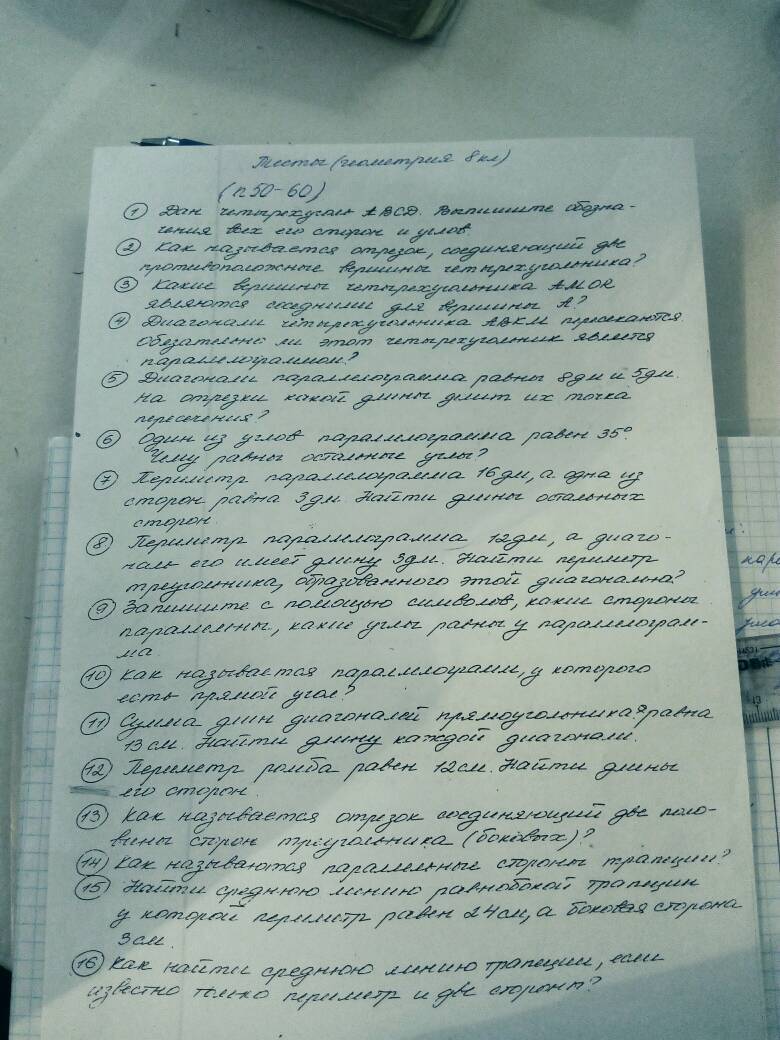 Тесты (геометрия 8 кл)
(п 50-60)
① Дан четырехуголь ABCD. Выпишите обозна-
чения всех его сторон и углов.
② Как называется отрезок, соединяющий две
противоположные вершины четырехугольника?
③ Какие вершины четырехугольника
являются соседними для вершины A?
④ Диагонали четырехугольника ABKM пересекаются.
Обязательно ли этот четырехугольник является
параллелограммом?
⑤ Диагонали параллелограмма равны 8дм и 5дм.
на отрезки какой длины делит их точка
пересечения?
⑥ Один из углов параллелограмма равен 35°.
Чему равны остальные углы?
⑦ Периметр параллелограмма 16дм, а одна из
сторон равна 3дм. Найти длины остальных
сторон.
⑧ Периметр параллелограмма 12дм, а диаго-
наль его имеет длину 3дм. Найти периметр
треугольника, образованного этой диагональю?
⑨ Запишите с помощью символов, какие стороны
параллельны, какие углы равны у параллелограм-
ма.
⑩ Как называется параллелограмм, у которого
есть прямой угол?
⑪ Сумма длин диагоналей прямоугольника равна
13 см. Найти длину каждой диагонали.
⑫ Периметр ромба равен 12см. Найти длины
его сторон.
⑬ Как называется отрезок соединяющий две поло-
вины сторон треугольника (боковых)?
⑭ Как называются параллельные стороны трапеции?
⑮ Найти среднюю линию равнобокой трапеции
у которой периметр равен 24см, а боковая сторона
3см.
⑯ Как найти среднюю линию трапеции, если
известно только периметр и две стороны?